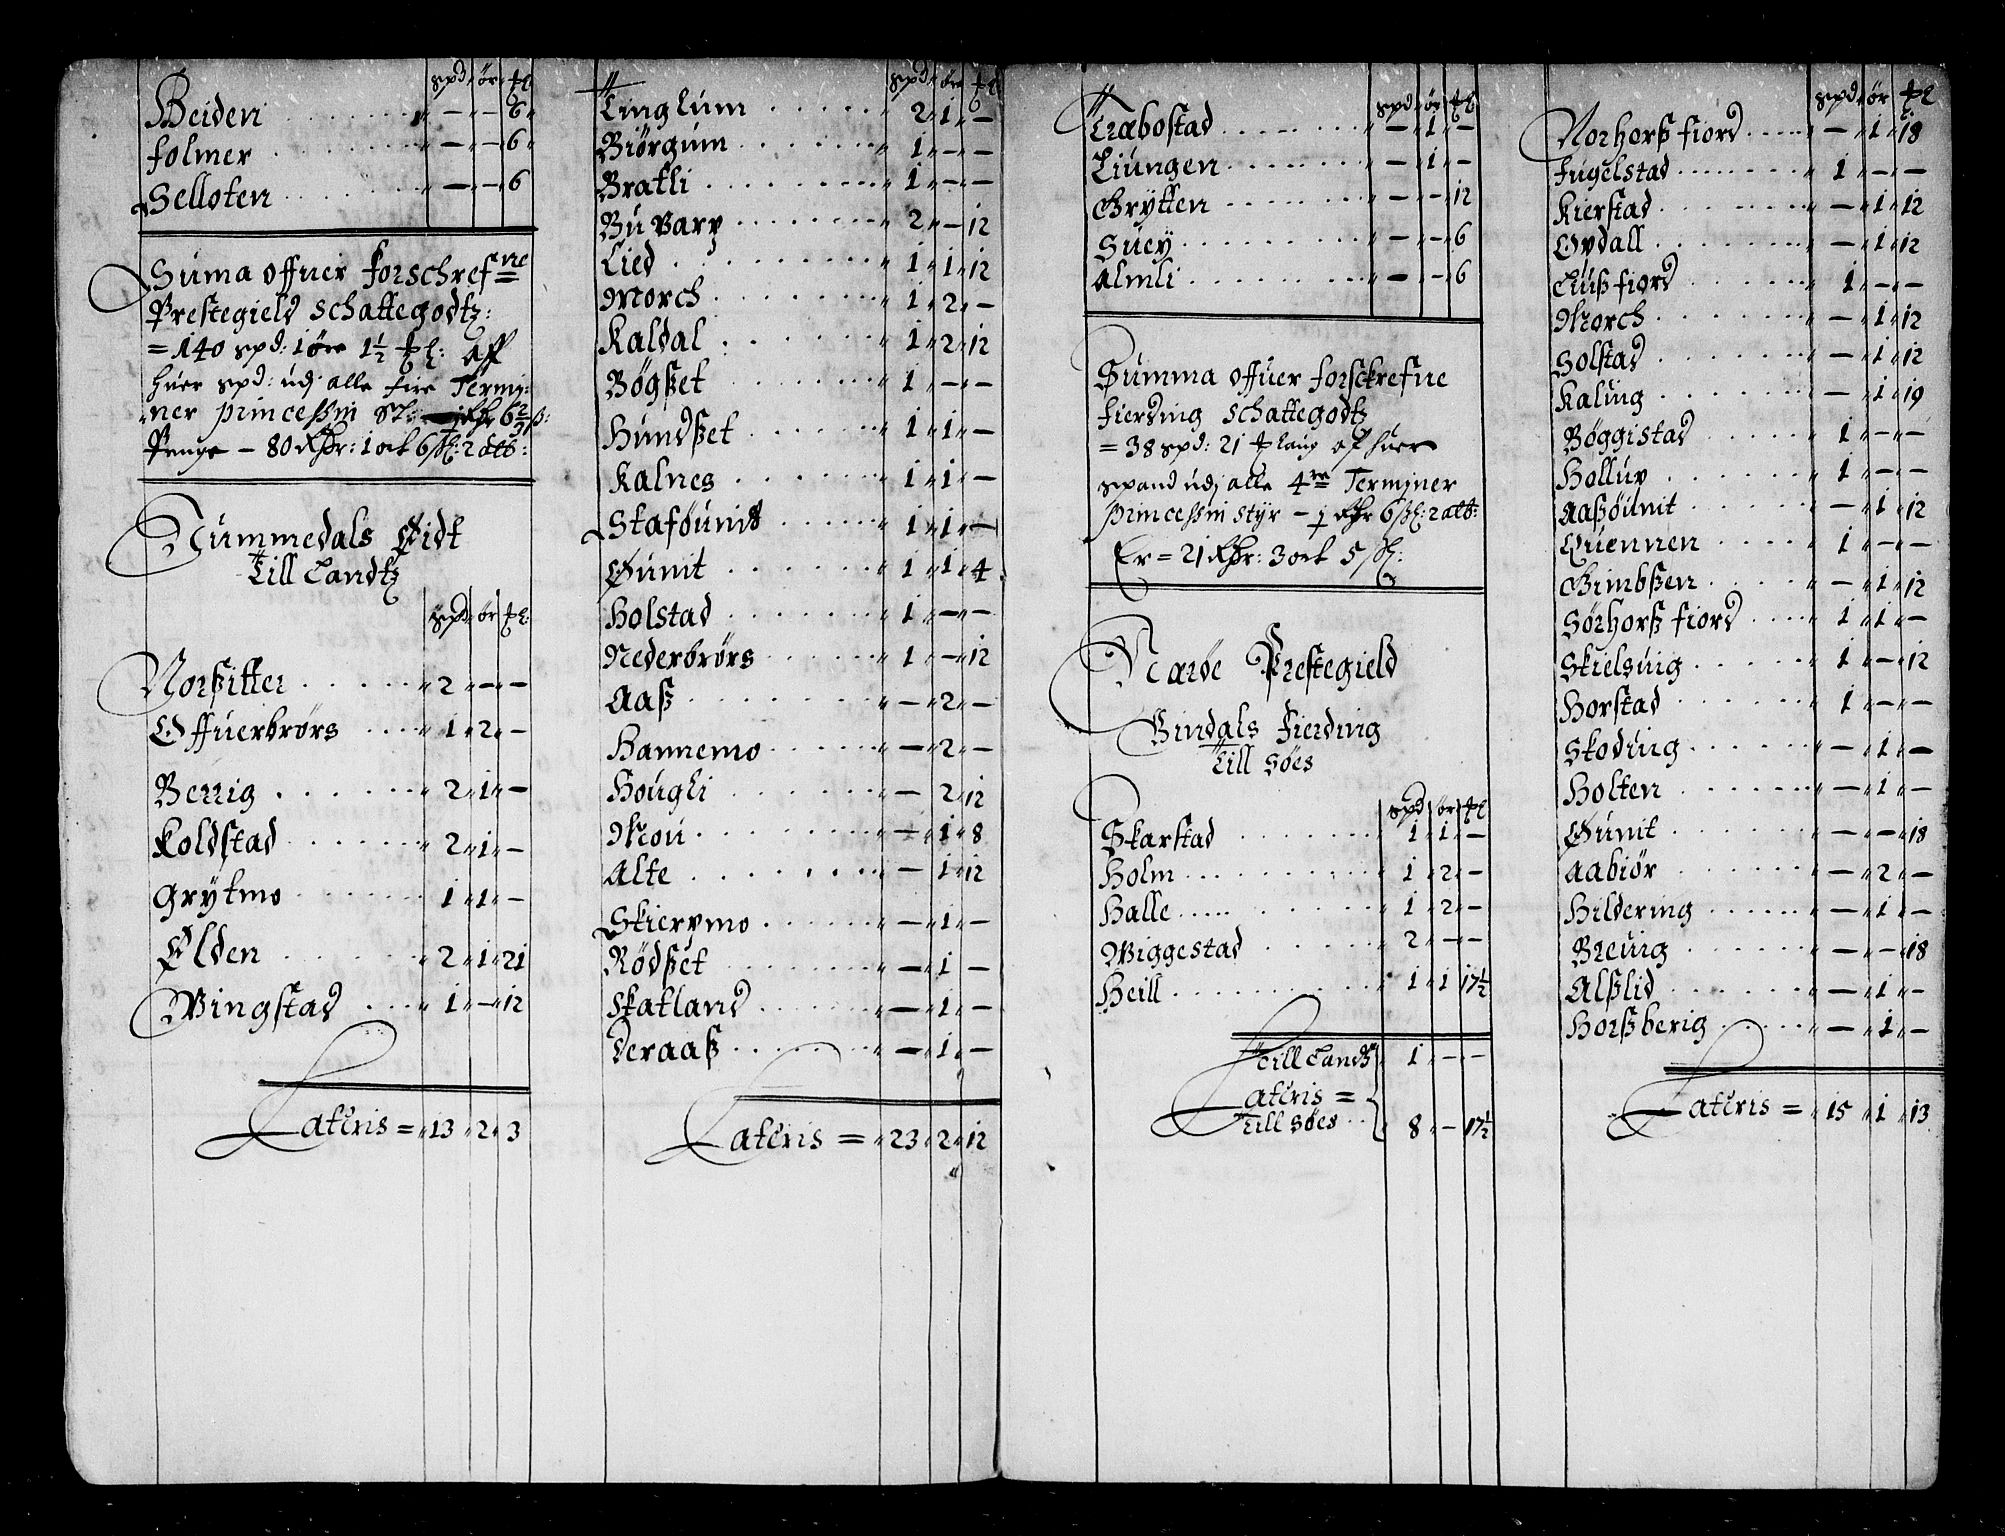 spd ør ꝑl
Beiden - - 6
folmer - - 6
Selloten - - 6
Suma offuer forschrefne
Prestegield schattegodtz:
= 140 spd: 1 øre 1½ ꝑl: aff
huer spd: udj alle fire Termj:
ner princessin St:
Penge - 80 Rdr: 1 ort 6 sk: 2 alb:
Nummedals Eidt
Till Landtz
spd ør ꝑl:
Norsitter 2 - -
Offuerbrørs 1 2 -
Berrig 2 1 -
Koldstad 2 1 -
Grytmo 1 1 -
Elden 2 1 21
Wingstad 1 - 12
Lateris = 13 2 3
spd øre ꝑl
Linglum 2 1 -
Biørgum 1 - -
Bratli 1 - -
Bu Varp 2 - 12
Lied 1 1 12
Morch 1 2 -
Kaldal 1 2 12
Bøgset 1 - -
Hundset 1 1 -
Kalnes 1 1 -
Staføunit 1 1 -
Øunit 1 1 4
Holstad 1 - -
Nederbrørs 1 - 12
Aaß - 2 -
Hannemo - 2 -
Hougli - 2 12
Mou - 1 8
Alte - 1 12
Skiervmo - 1 -
Rødset - 1 -
Skatland - 1 -
Deraaß - 1 -
Lateris = 23 2 12
spd ør ꝑl
Trabostad - 1 -
Liungen - 1 -
Grytten - - 12
Suey - - 6
Almli - - 6
Summa offuer forsckrefne
fierding schattegodtz
= 38 spd: 21 ꝑlaug af huer
spand udj alle 4re Termjner
princessin styr - j Rdr 6 sk: 2 alb:
Er = 21 Rdr: 3 ort 5 sk:
Narøe Prestegield
Bindals Fierding
Till Søes
spd ør ꝑl
Skarstad 1 1 -
Holm 1 2 -
Halle 1 2 -
Wiggestad 2 - -
Heill 1 1 17½
Till Landtz 1 - -
Lateris =
Till Søes 8 - 17½
spd ør ꝑl
Norhorß fiord - 1 18
Fugelstad 1 - -
Kierstad - 1 12
Opdall - 1 12
Lußfiord 1 - -
Morch - 1 12
Solstad - 1 12
Kaling - 1 19
Bøggistad 1 - -
Hollup 1 - -
Aaßøunit - 1 12
Quennen 1 - -
Gimbßen - 1 12
Sørhorß fiord 1 1 -
Skielsuig 1 - 12
Horstad 1 - -
Skoduig - 1 -
Holten - 1 -
Øunit - - 18
Aabiør - 2 -
Hildering - 1 -
Breuig - - 18
Alßlid - 1 -
Horßberig - 1 -
Lateris = 15 1 13